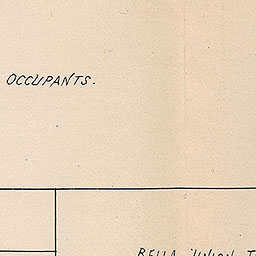 OCCUPANTS.
BELLA UNION